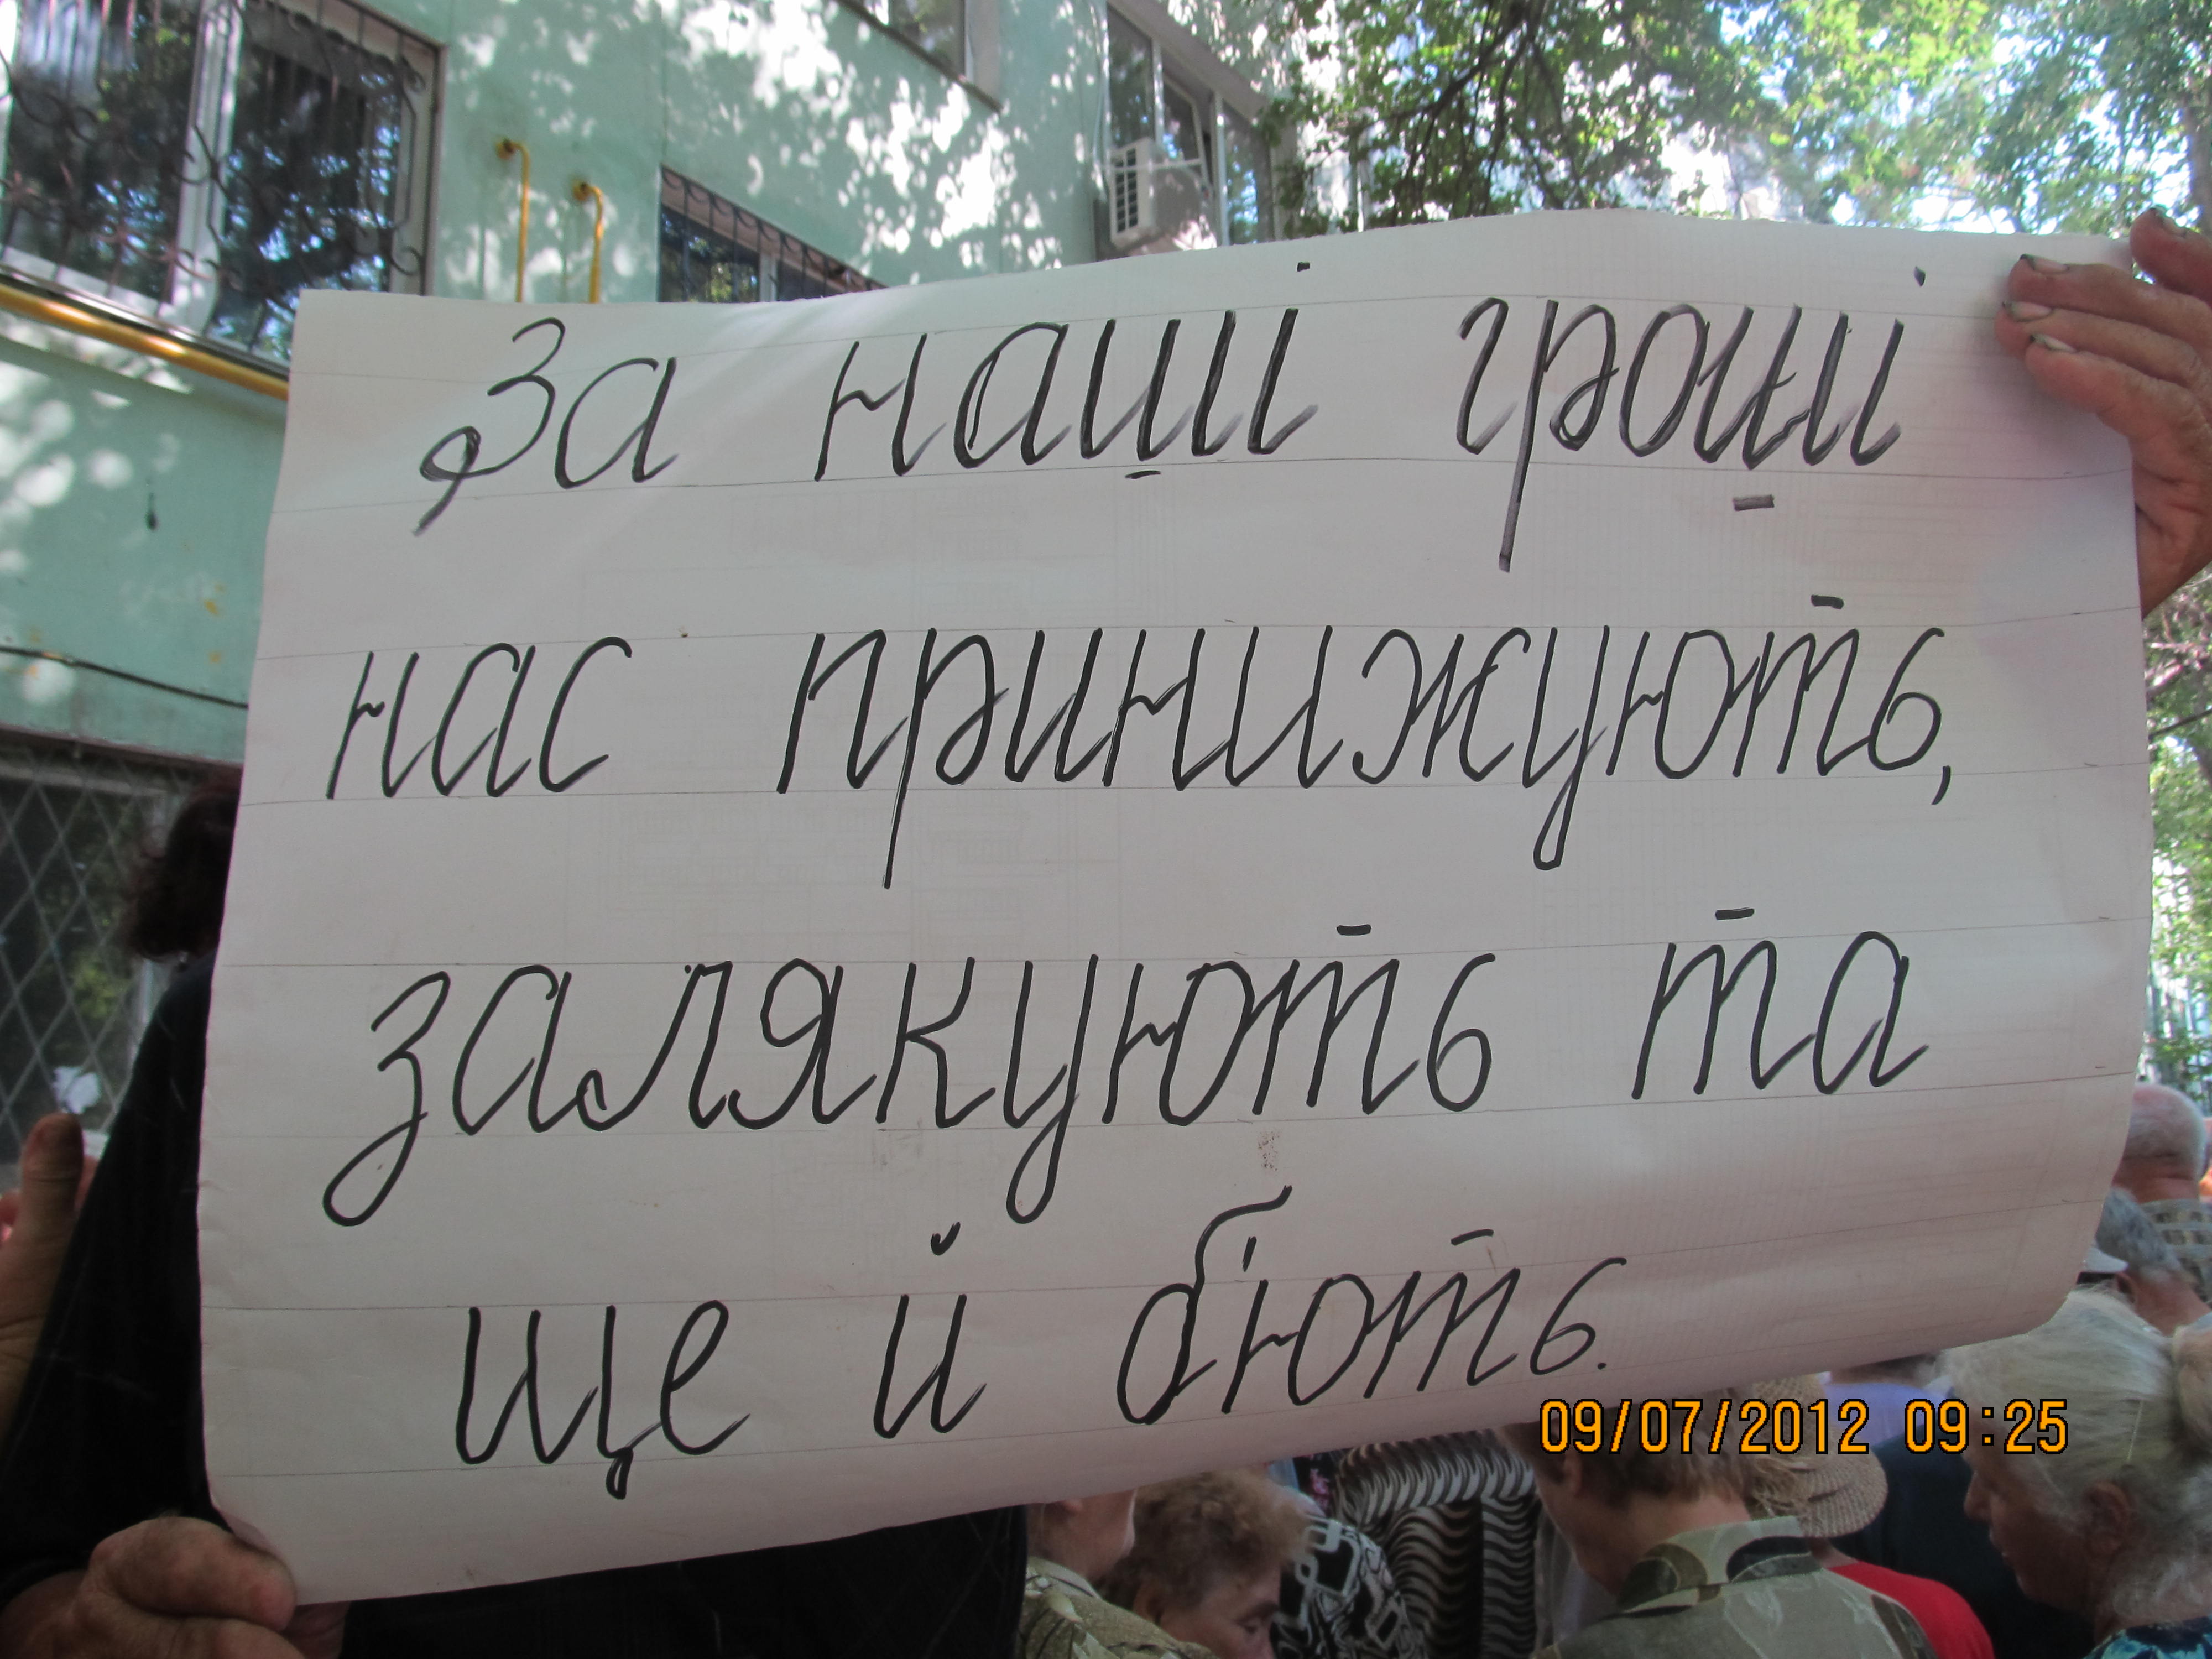 За наші гроші
нас принижують,
залякують та
ще й б'ють.
09/07/2012 09:25